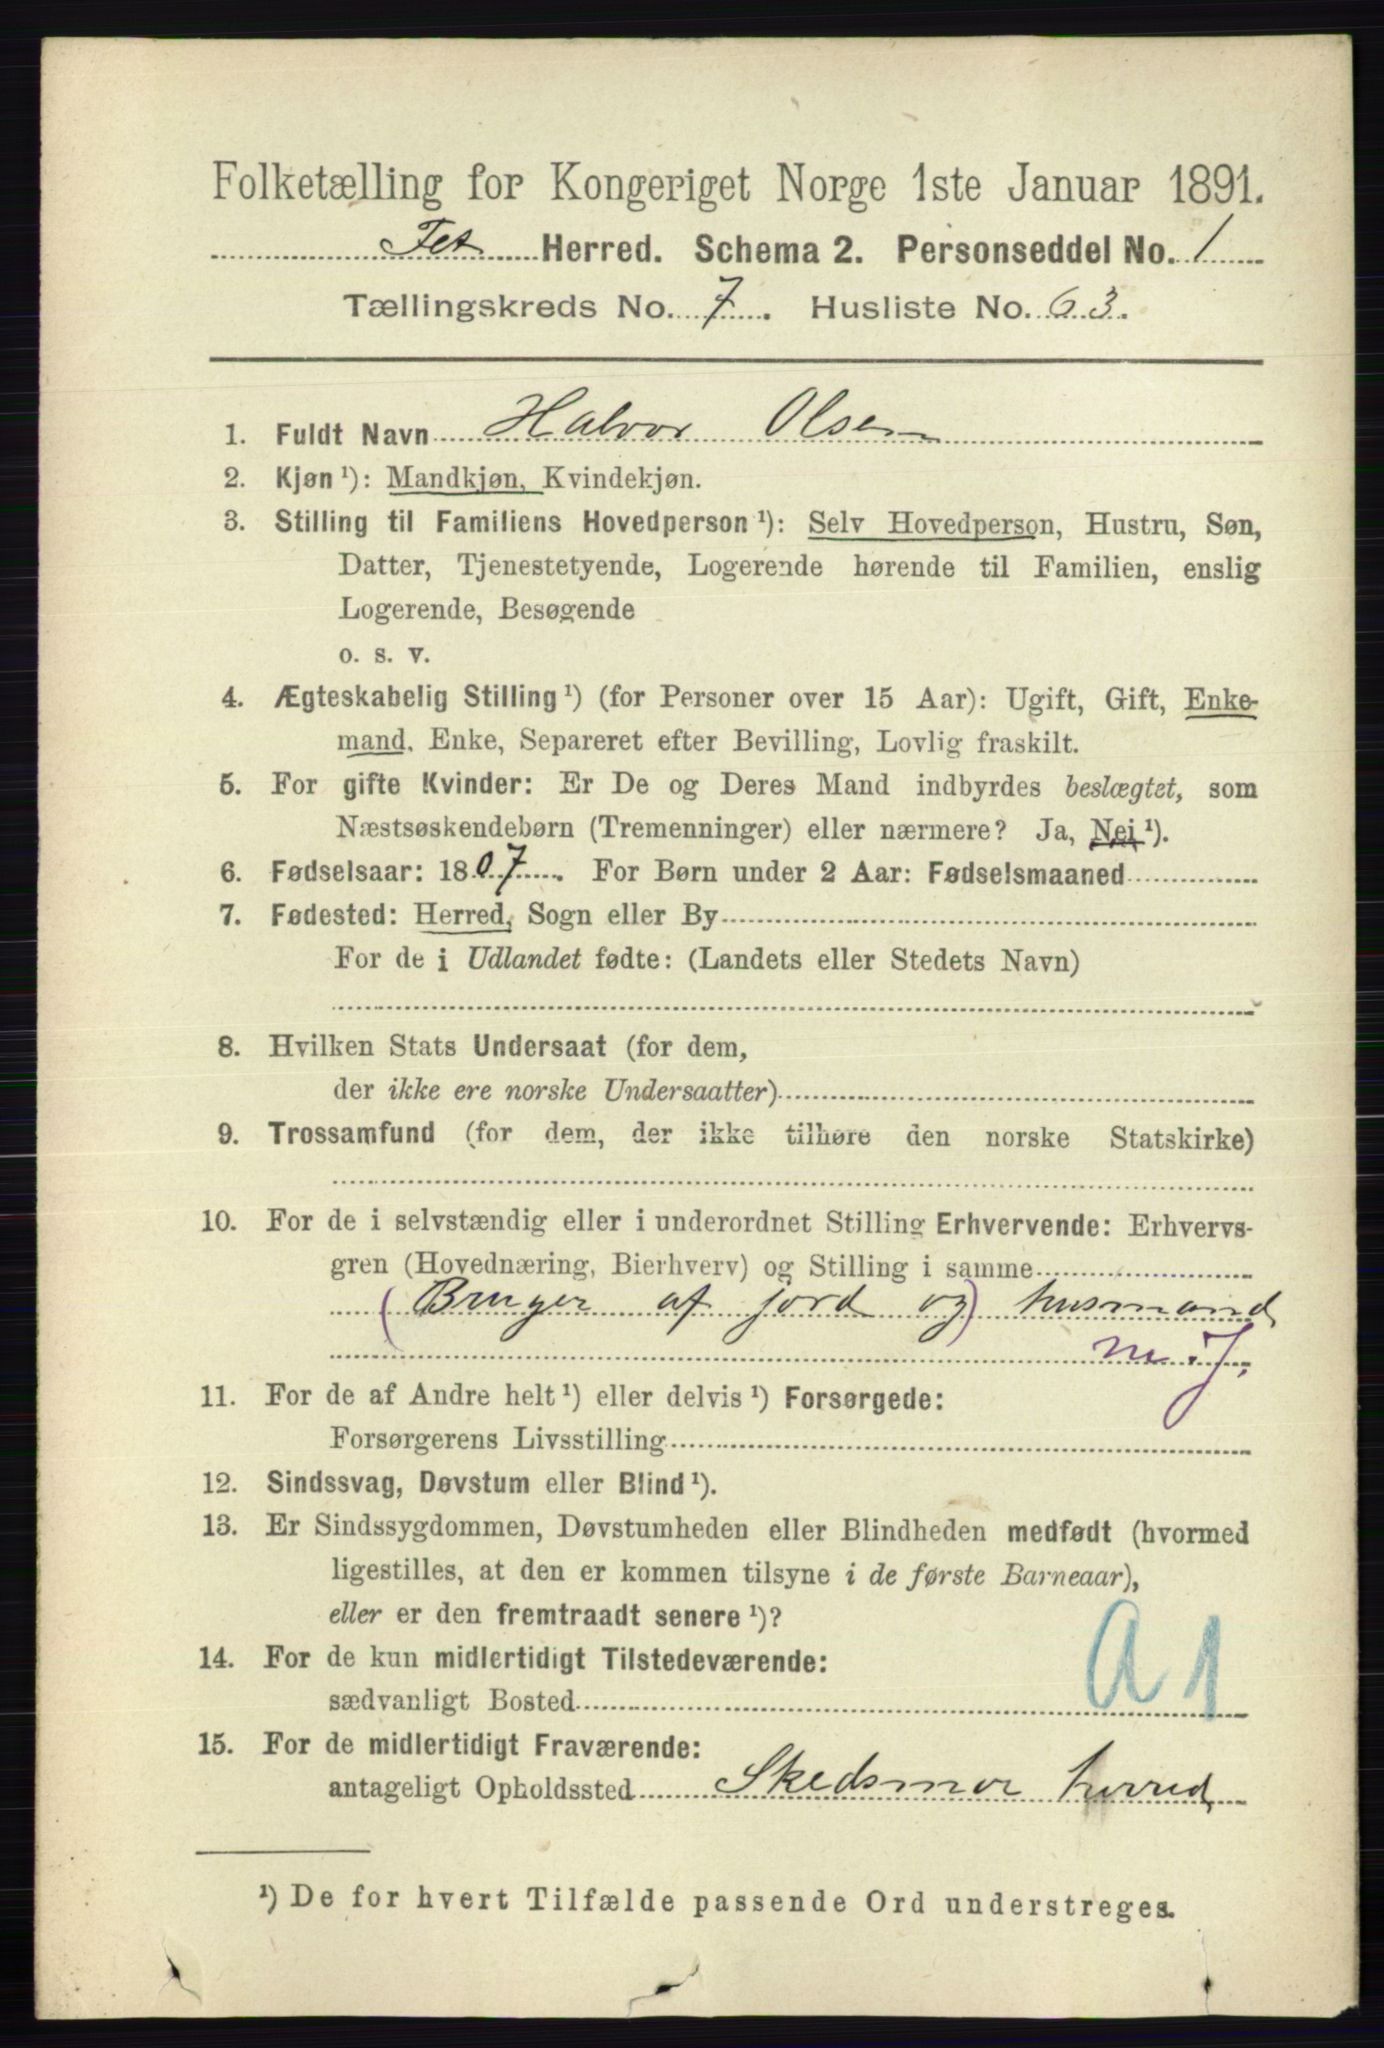 Folketælling for Kongeriget Norge 1ste Januar 1891.
Fet Herred. Schema 2. Personseddel No. 1
Tællingskreds No. 7. Husliste No. 63.
1. Fuldt Navn Halvor Olsen
2. Kjøn ¹): Mandkjøn, Kvindekjøn.
3. Stilling til Familiens Hovedperson ¹): Selv Hovedperson, Hustru, Søn,
Datter, Tjenestetyende, Logerende hørende til Familien, enslig
Logerende, Besøgende
o. s. v.
4. Ægteskabelig Stilling ¹) (for Personer over 15 Aar): Ugift, Gift, Enke-
mand, Enke, Separeret efter Bevilling, Lovlig fraskilt.
5. For gifte Kvinder: Er De og Deres Mand indbyrdes beslægtet, som
Næstsøskendebørn (Tremenninger) eller nærmere? Ja, Nei ¹).
6. Fødselsaar: 1807. For Børn under 2 Aar: Fødselsmaaned
7. Fødested: Herred, Sogn eller By
For de i Udlandet fødte: (Landets eller Stedets Navn)
8. Hvilken Stats Undersaat (for dem,
der ikke ere norske Undersaatter)
9. Trossamfund (for dem, der ikke tilhøre den norske Statskirke)
10. For de i selvstændig eller i underordnet Stilling Erhvervende: Erhvervs-
gren (Hovednæring, Bierhverv) og Stilling i samme
(Bruger af jord og) husmand
m. J.
11. For de af Andre helt ¹) eller delvis ¹) Forsørgede:
Forsørgerens Livsstilling
12. Sindssvag, Døvstum eller Blind ¹).
13. Er Sindssygdommen, Døvstumheden eller Blindheden medfødt (hvormed
ligestilles, at den er kommen tilsyne i de første Barneaar),
eller er den fremtraadt senere ¹)?
14. For de kun midlertidigt Tilstedeværende:
sædvanligt Bosted
A 1
15. For de midlertidigt Fraværende:
antageligt Opholdssted Skedsmoe herred
¹) De for hvert Tilfælde passende Ord understreges.